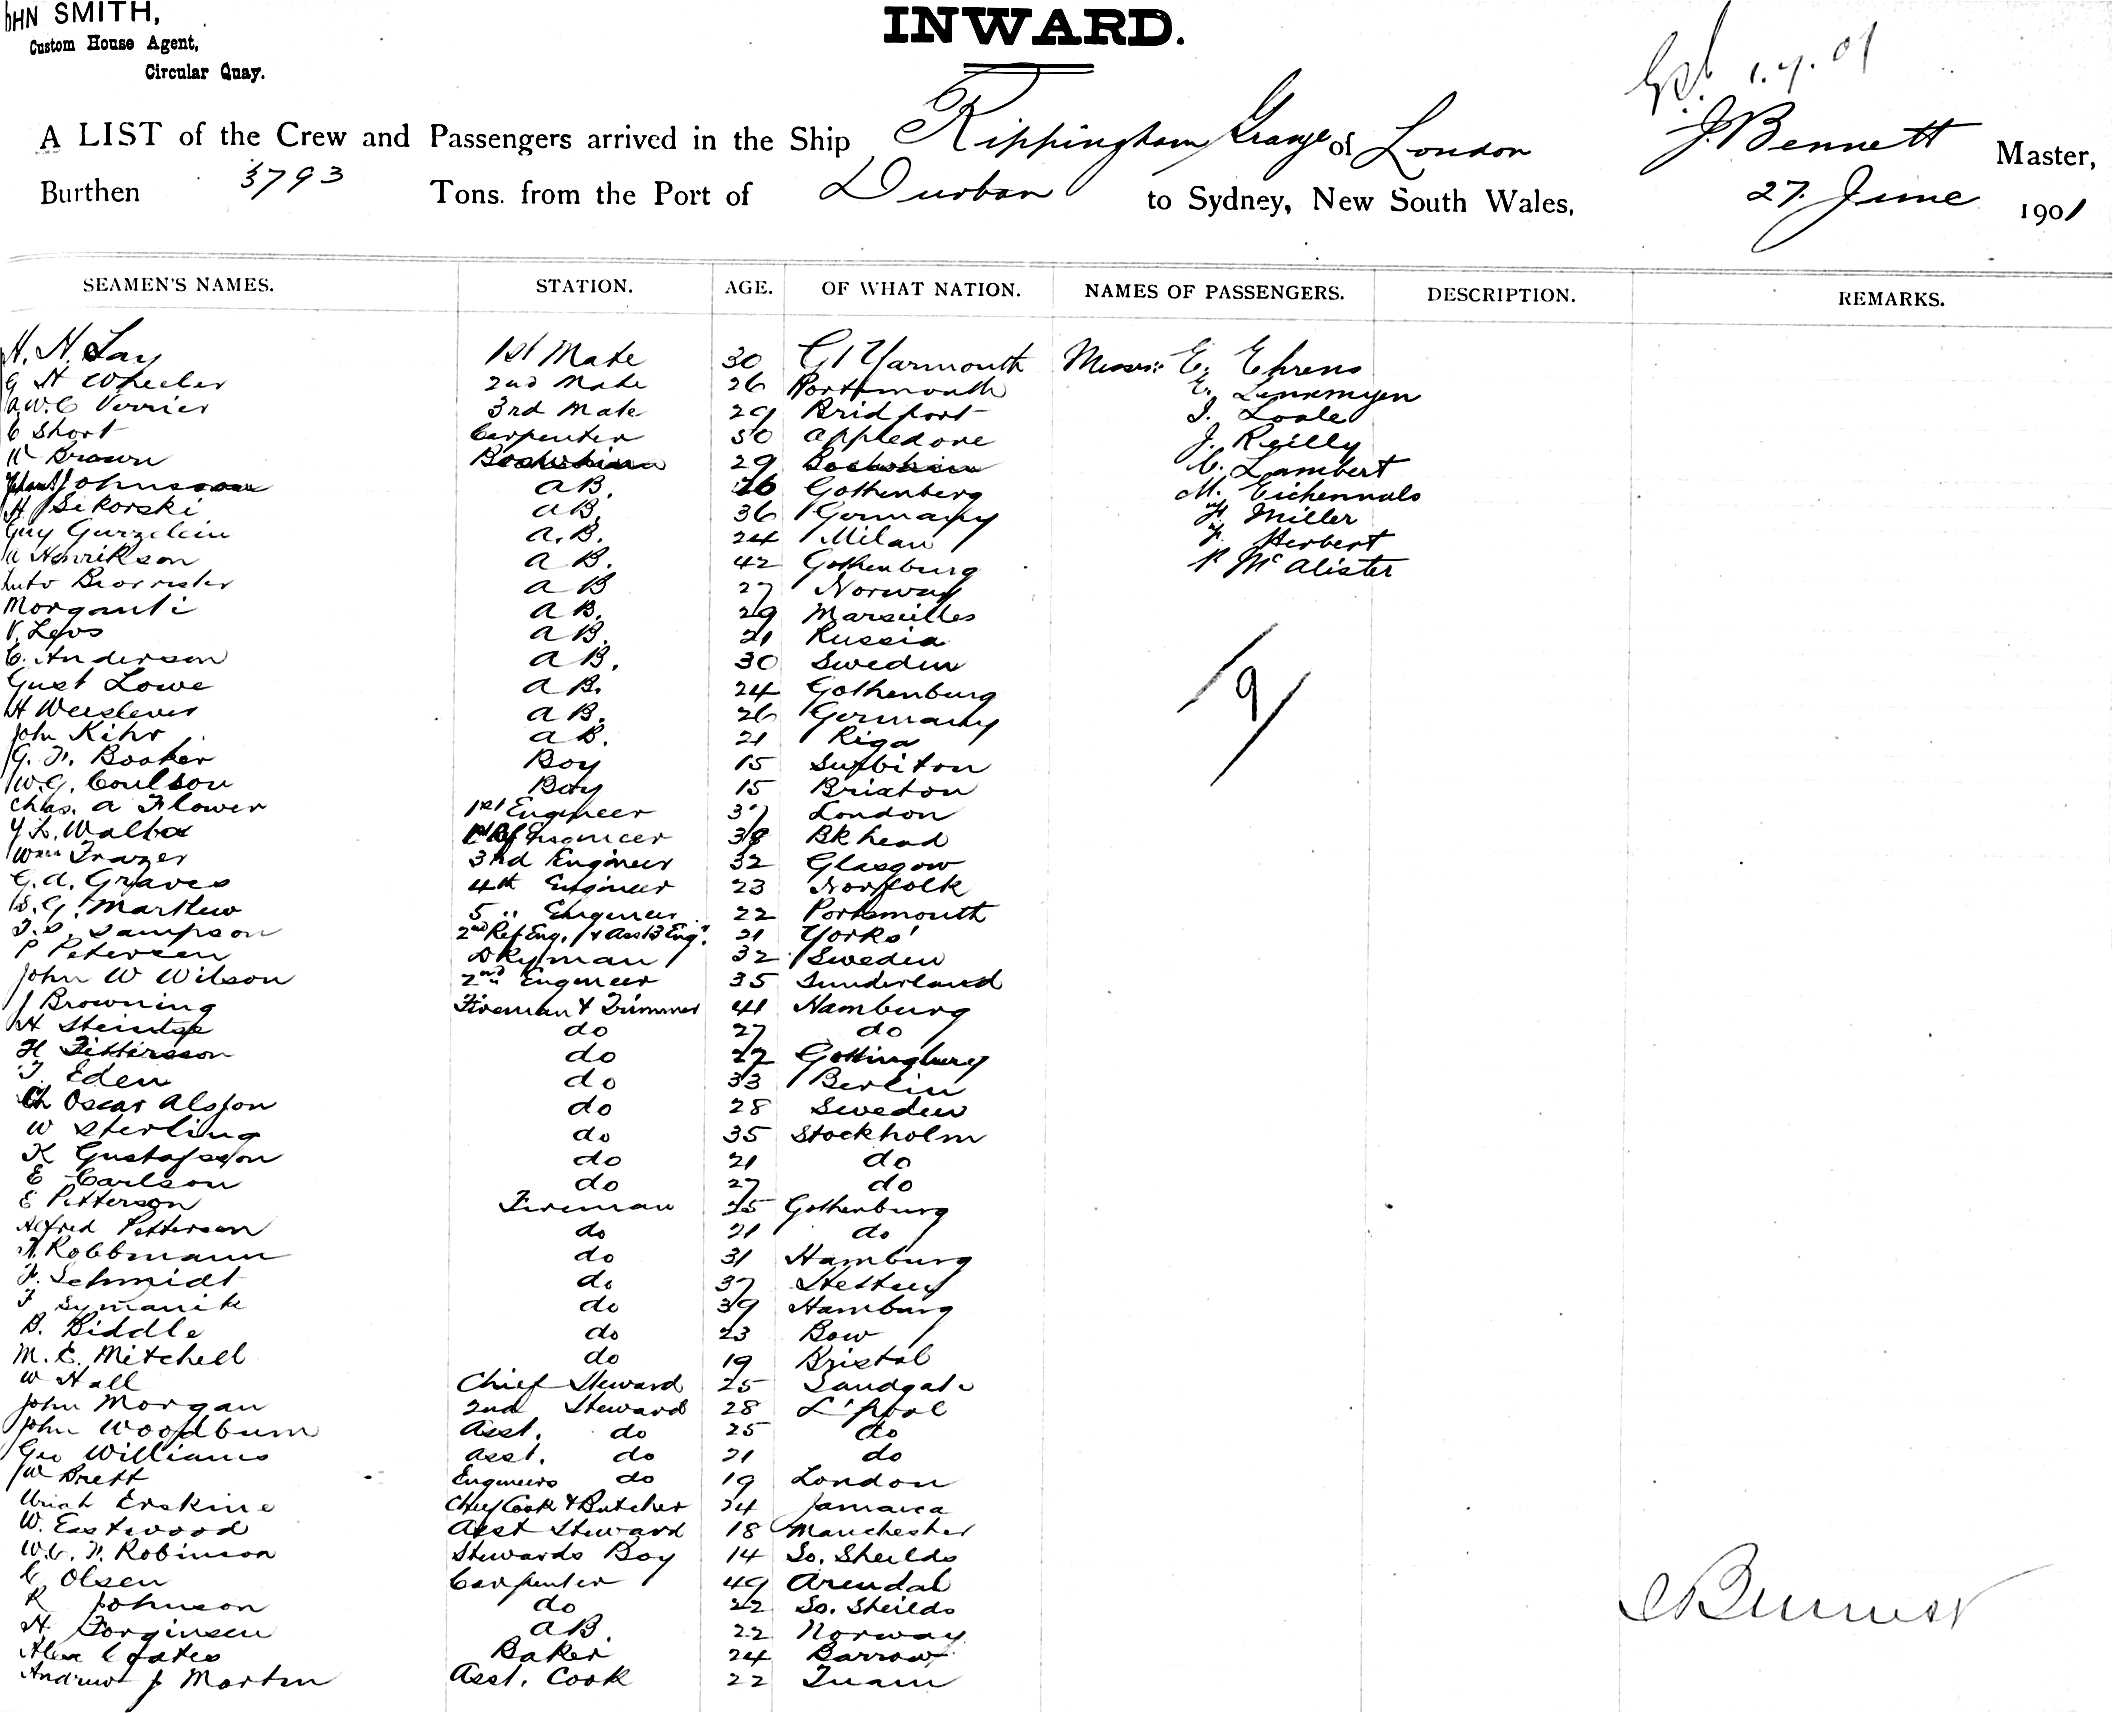 JOHN SMITH,
Custom House Agent,
Circular Quay.
INWARD.
1.7.01
A LIST of the Crew and Passengers arrived in the Ship Rippingham Grange of London J. Bennett Master,
Burthen 5793 Tons. from the Port of Durban to Sydney, New South Wales, 27 June 1901
SEAMEN'S NAMES. STATION. AGE. OF WHAT NATION. NAMES OF PASSENGERS. DESCRIPTION. REMARKS.
H. H. Lay 1st Mate 30 Gt Yarmouth Messrs: E. Ehrens
G H Wheeler 2nd Mate 26 Portsmouth E.
A.W.C Verrier 3rd Mate 29 Bridport J. Loale
C Short Carpenter 50 Appledore J. Reilly
Brown 29 C. Lambert
Johnsson AB. 26 Gothenberg M.
H Sikorski AB. 36 Germany H Miller
Guy A.B. 24 Milan Herbert
A Henrikson A B. 42 Gothenburg McAlister
A B 27 Norway
Morganti A B. 29 Marseilles
V. Levs A B. 21 Russia
C. Anderson A B. 30 Sweden
Gust Lowe A B. 24 Gothenburg
H A B. 26 Germany
John Kihr A B. 21 Riga
9
G. F. Booker Boy 15 Surbiton
W.G. Coulson Boy 15 Brixton
Chas. A Flower 1st Engineer 37 London
1st Ref Engineer 38 BKhead
Wm Frazer 3rd Engineer 32 Glasgow
G.A. Graves 4th Engineer 23 Norfolk
S. G. Marthew 5 " Engineer 22 Portsmouth
Sampson 2nd Ref Eng. & Asst 3 Eng. 21 Yorks'
P Petersen DKyman 32 Sweden
John W Wilson 2nd Engineer 35 Sunderland
J Browning Fireman & Trimmer 41 Hamburg
H do 27 do
H Pettersson do 22
Eden do 33 Berlin
Ch Oscar Alsson do 28 Sweden
W Sterling do 35 Stockholm
K Gustafsson do 21 do
E Carlson do 27 do
E Petterson Fireman 25 Gothenburg
Alfred Petterson do 21 do
A Robbmann do 31 Hamburg
F. Schmidt do 37
F Symanik do 39 Hamburg
B. Biddle do 23 Bow
M. E. Mitchell do 19 Bristol
W Hall Chief Steward 25 Sandgate
John Morgan 2nd Steward 28 L'pool
John Woodburn Asst. do 25 do
Geo Williams Asst. do 21 do
W Brett Engineers do 19 London
Uriah Erskine Chief Cook & Butcher 24 Jamaica
W. Eastwood Asst Steward 18 Manchester
W.C. F. Robinson Stewards Boy 14 So. Sheilds
C Olsen Carpenter 49 Arendal
R Johnson do 22 So. Sheilds
H. Jorginsen AB. 22 Norway
Alex Coates Baker 24 Barrow
Andrew J Martin Asst. Cook 22 Tuam
J Bennett